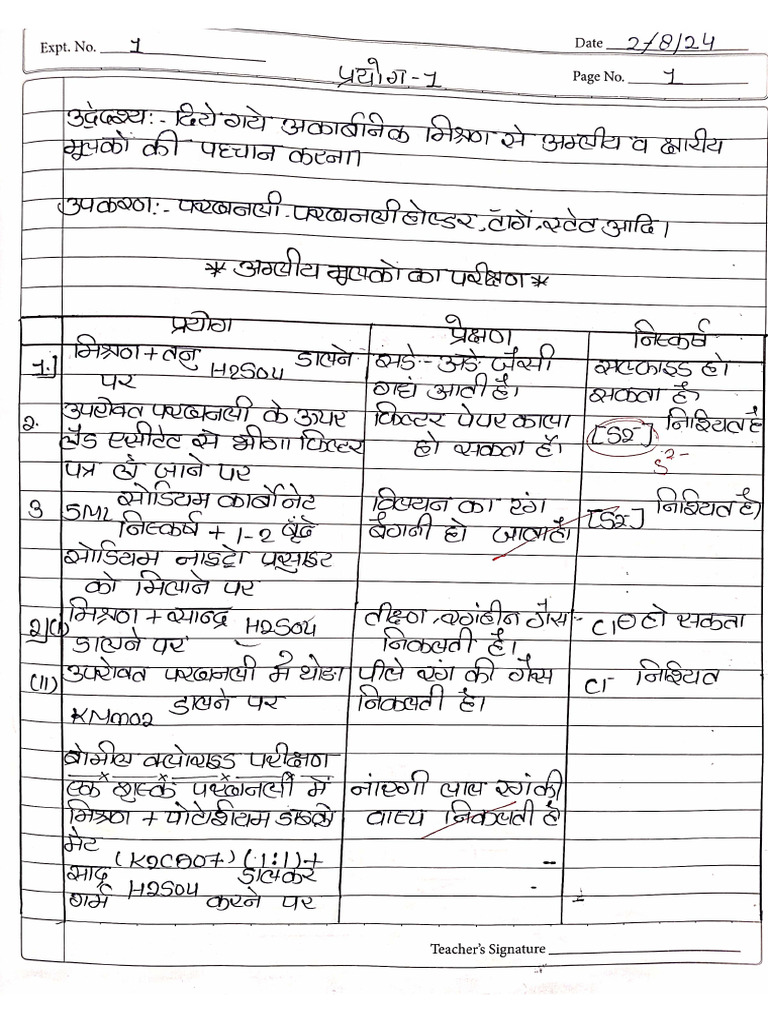 Expt. No. 1
Date 2/8/24
Page No. 1
प्रयोग-1
उद्देश्य:- दिये गये अकार्बनिक मिश्रण से अम्लीय व क्षारीय
मूलकों की पहचान करना।
उपकरण:- परखनली, परखनली होल्डर, टॉंगे, स्टेट आदि।
* अम्लीय मूलकों का परीक्षण *
प्रयोग प्रेक्षण निस्कर्ष
1.] मिश्रण + तनु H2SO4 डालने सडे- अंडे जैसी सल्फाइड हो
पर गधं आती है। सकता है
2. उपरोक्त परखनली के ऊपर फिल्टर पेपर काला [S2-] निश्चित है
लैड एसीटेट से भीगा फिल्टर हो सकता है। S2-
पत्र ले जाने पर
3 5ML सोडियम कार्बोनेट विलयन का रंग [S2-] निश्चित है।
निस्कर्ष + 1-2 बूंदे बैंगनी हो जाता है।
सोडियम नाइट्रो प्रुसाइट
को मिलाने पर
2](i) मिश्रण + सान्द्र H2SO4 तीक्ष्ण, रगंहीन गैस- Cl⊖ हो सकता
डालने पर निकलती है।
(II) उपरोक्त परखनली में थोडा पीले रंग की गैस Cl- निश्चित
KNmO2 डालने पर निकलती है।
क्रोमील क्लोराइड परीक्षण
एक शुस्क परखनली में नांरगी लाल रंग की
मिश्रण + पोटेशियम डाइक्रो वाष्प निकलती है
मेट (K2CrO7) (1:1) +
साद्र H2SO4 डालकर
गर्म करने पर
Teacher's Signature